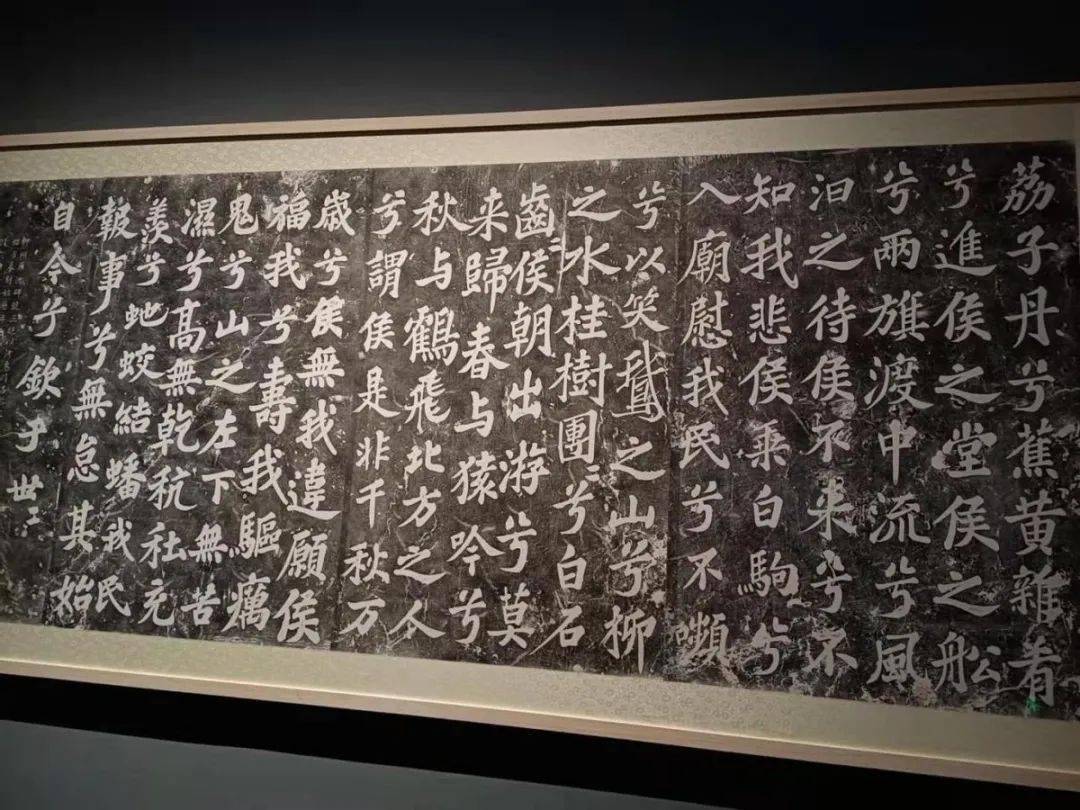 荔子丹兮蕉黄雜肴
兮進侯之堂侯之船
兮两旗渡中流兮風
汩之待侯不来兮不
知我悲侯乘白駒兮
入廟慰我民兮不嚬
兮以笑鵞之山兮柳
之水桂樹團〻兮白石
齒〻侯朝出游兮莫
来歸春与猿吟兮
秋与鶴飛北方之人
兮謂侯是非千秋万
歲兮侯無我違願侯
福我兮壽我驅癘
鬼兮山之左下無苦
濕兮髙無乾秔稌充
羡兮虵蛟結蟠我民
報事兮無怠其始
自今兮欽于世〻